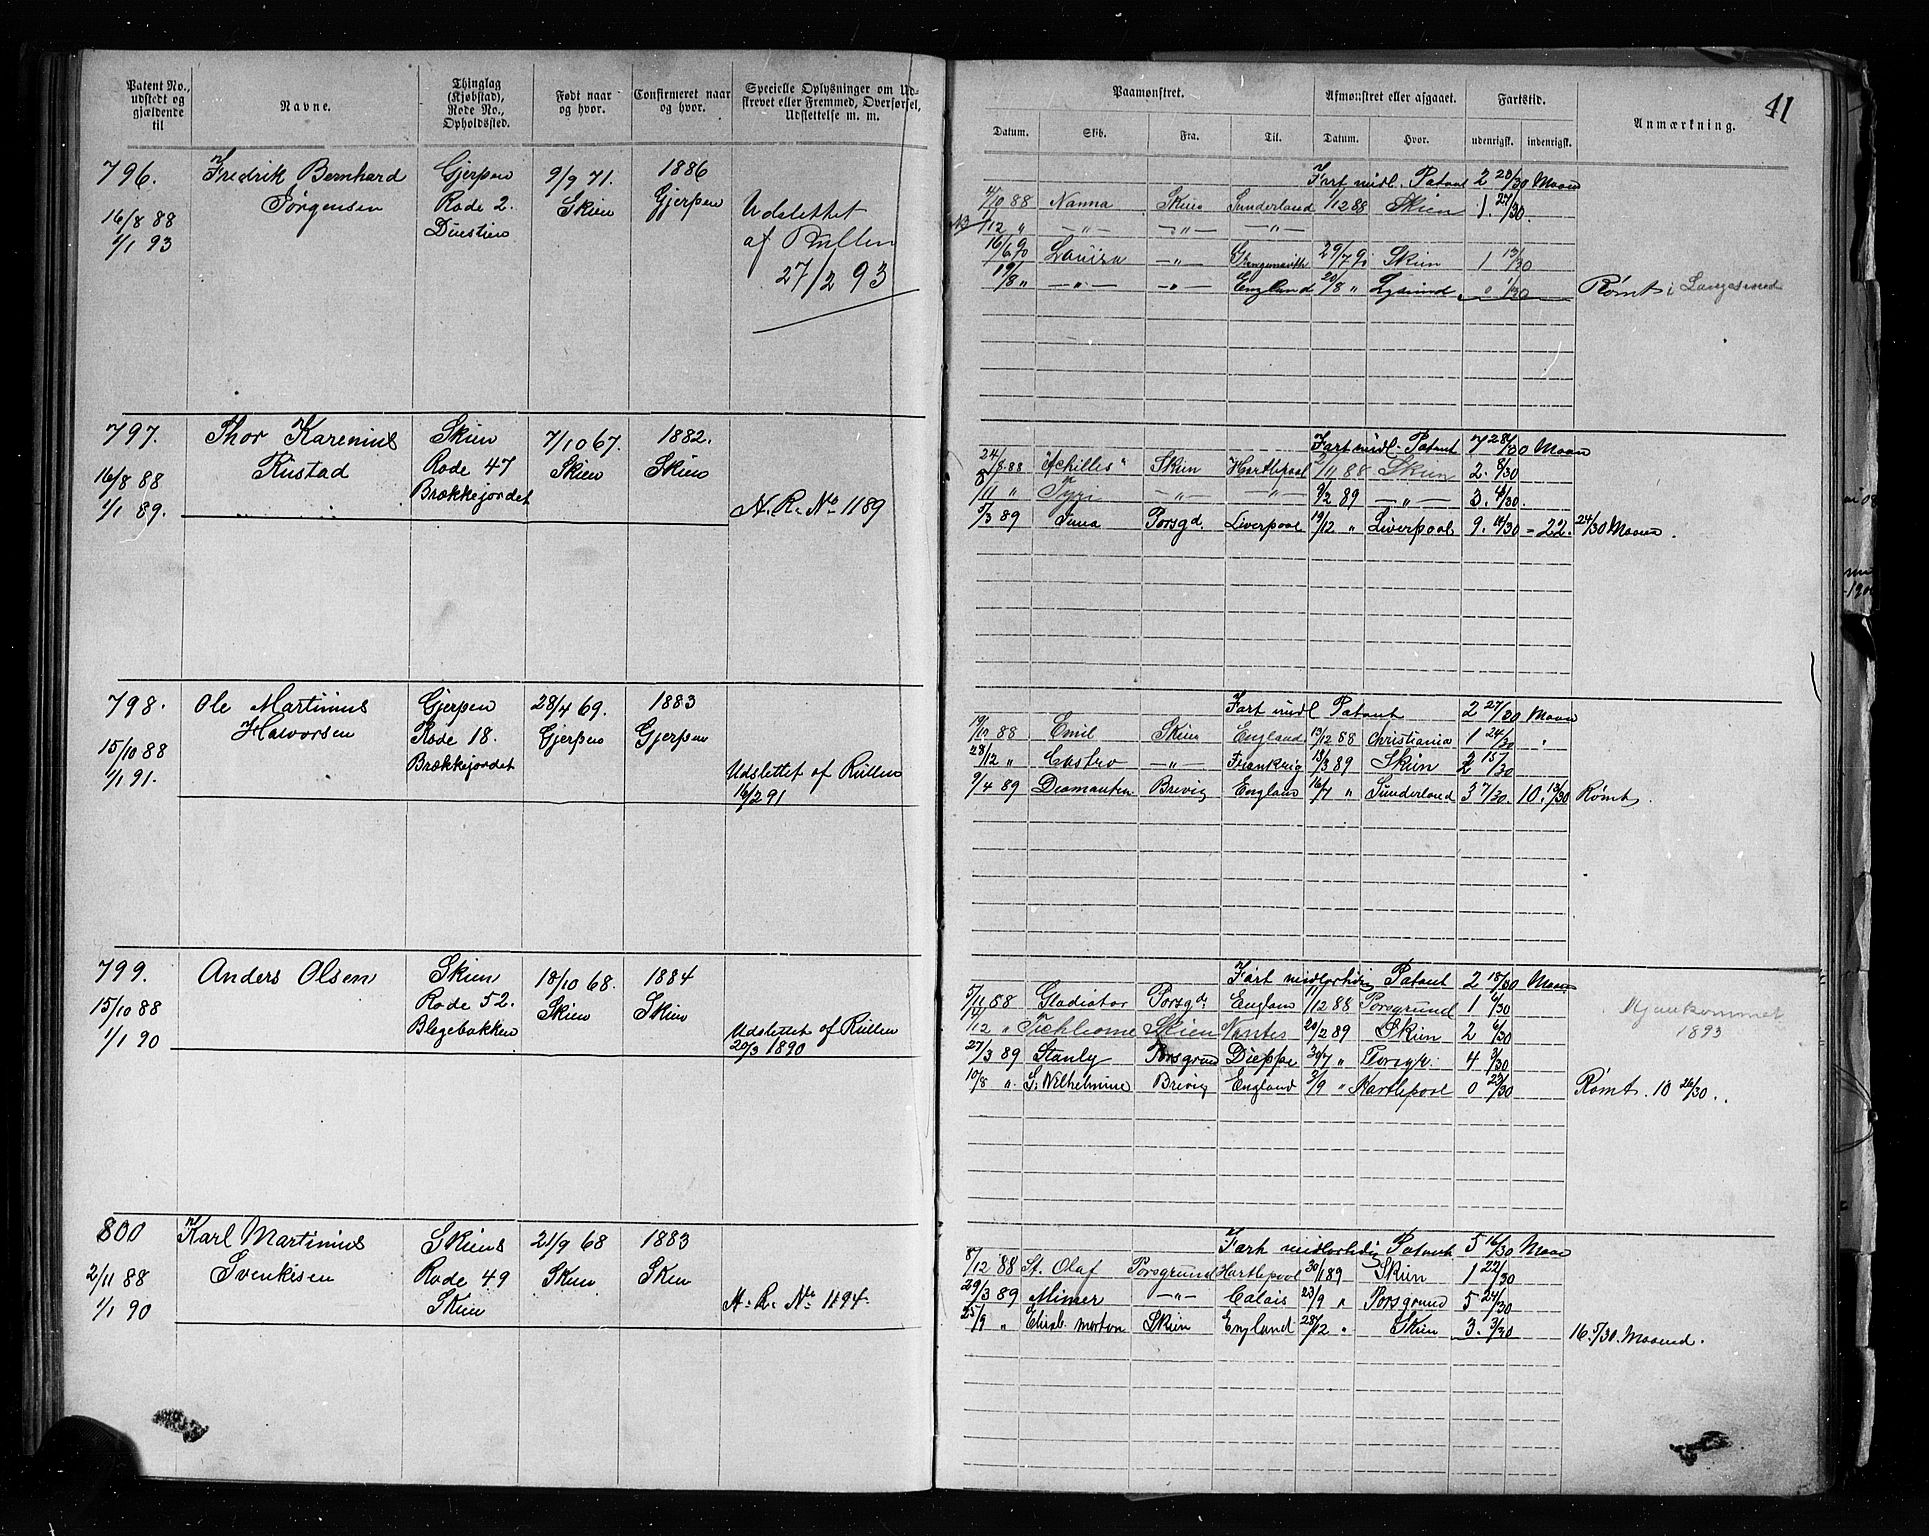 Patent No., udstedt og gjældende til | Navne. | Thinglag (Kjøbstad), Rode No., Opholdssted. | Født naar og hvor. | Confirmeret naar og hvor. | Specielle Oplysninger om Udskrevet eller Fremmed, Overførsel, Udslettelse m. m.
796. | Fredrik Bernhard | Gjerpen | 9/9 71. | 1886
Jørgensen | Rode 2. | Skien | Gjerpen | Udslettet
16/8 88 | af Rullen
1/1 93 | 27/2 93
797. | Thor Karenius | Skien | 7/10 67. | 1882.
Rustad | Rode 47 | Skien | Skien
16/8 88 | Brækkejordet
1/1 89. | A. R. No 1189
798. | Ole Martinius | Gjerpen | 28/4 69. | 1883
Halvorsen | Rode 18. | Gjerpen | Gjerpen
15/10 88 | Brækkejordet | Udslettet af Rullen
1/1 91. | 16/2 91
799. | Anders Olsen | Skien | 18/10 68. | 1884
15/10 88 | Rode 52. | Skien | Skien
Blegebakken | Udslettet af Rullen
1/1 90 | 20/3 1890
800 | Karl Martinius | Skiens | 21/9 68 | 1883
2/11 88 | Svenkesen | Rode 49 | Skien | Skien
1/1 90 | Skien | A. R. No 1194.
41
Paamønstret. | Afmønstret eller afgaaet. | Fartstid. | Anmærkning.
Datum. | Skib. | Fra. | Til. | Datum. | Hvor. | udenrigst. | indenrigst.
Fart midl. Patent 2 28/30 Maan
4/10 88 | Nanna | Skien | Sunderland | 1/12 88 | Skien | 1. 27/30.
1/12 " | — " — | — " — | — " —
16/6 90 | Louisa | — " — | 29/7 90 | Skien | 1 13/30
19/8 " | — " — | — " — | England | 20/8 " | 0 1/30 | Rømt i Langesund
Fart midl. Patent 7 28/30 Maan
24/8 88 | "Achilles" | Skien | Hartlepool | 2/11 88 | Skien | 2. 8/30
8/11 " | — " — | — " — | 9/2 89 | — " — | 3.
5/3 89 | Porsgd. | Liverpool | 19/12 " | Liverpool | 9. 14/30 = 22. 24/30 Maaned.
Fart midl Patent | 2 27/30 Maan
19/10 88 | Emil | Skien | England | 13/12 88 | Christiania | 1 24/30 "
28/12 " | Castro | — " — | Frankrig | 13/3 89 | Skien | 2 15/30
9/4 89 | Diamanten | Brevig | England | 16/7 " | Sunderland | 3 7/30. | 10. 13/30 | Rømt.
Fart midlertidig Patent 2 18/30 Maan
5/11 88 | Gladiator | Porsgd. | England | 11/12 88 | Porsgrund | 1 6/30 | Hjemkommet
1893
17/12 " | Skien | Nantes | 20/2 89 | Skien | 2 4/30
27/3 89 | Stanly | Porsgrund | Dieppe | 30/7 " | Porsgr. | 4 3/30
10/8 ". | Wilhelmine | Brevig | England | 3/9 " | Hartlepool | 0 23/30 | Rømt. 10 26/30..
Fart midlertidig Patent 5 16/30 Maan
8/12 88 | St. Olaf | Porsgrund | Hartlepool | 30/1 89 | Skien | 1 22/30
29/3 89 | Mimer | — " — | Calais | 23/9 " | Porsgrund | 5 24/30
25/9 " | Elisb. Morton | Skien | England | 28/12 " | Skien | 3. 3/30 | 16 5/30. Maaned.